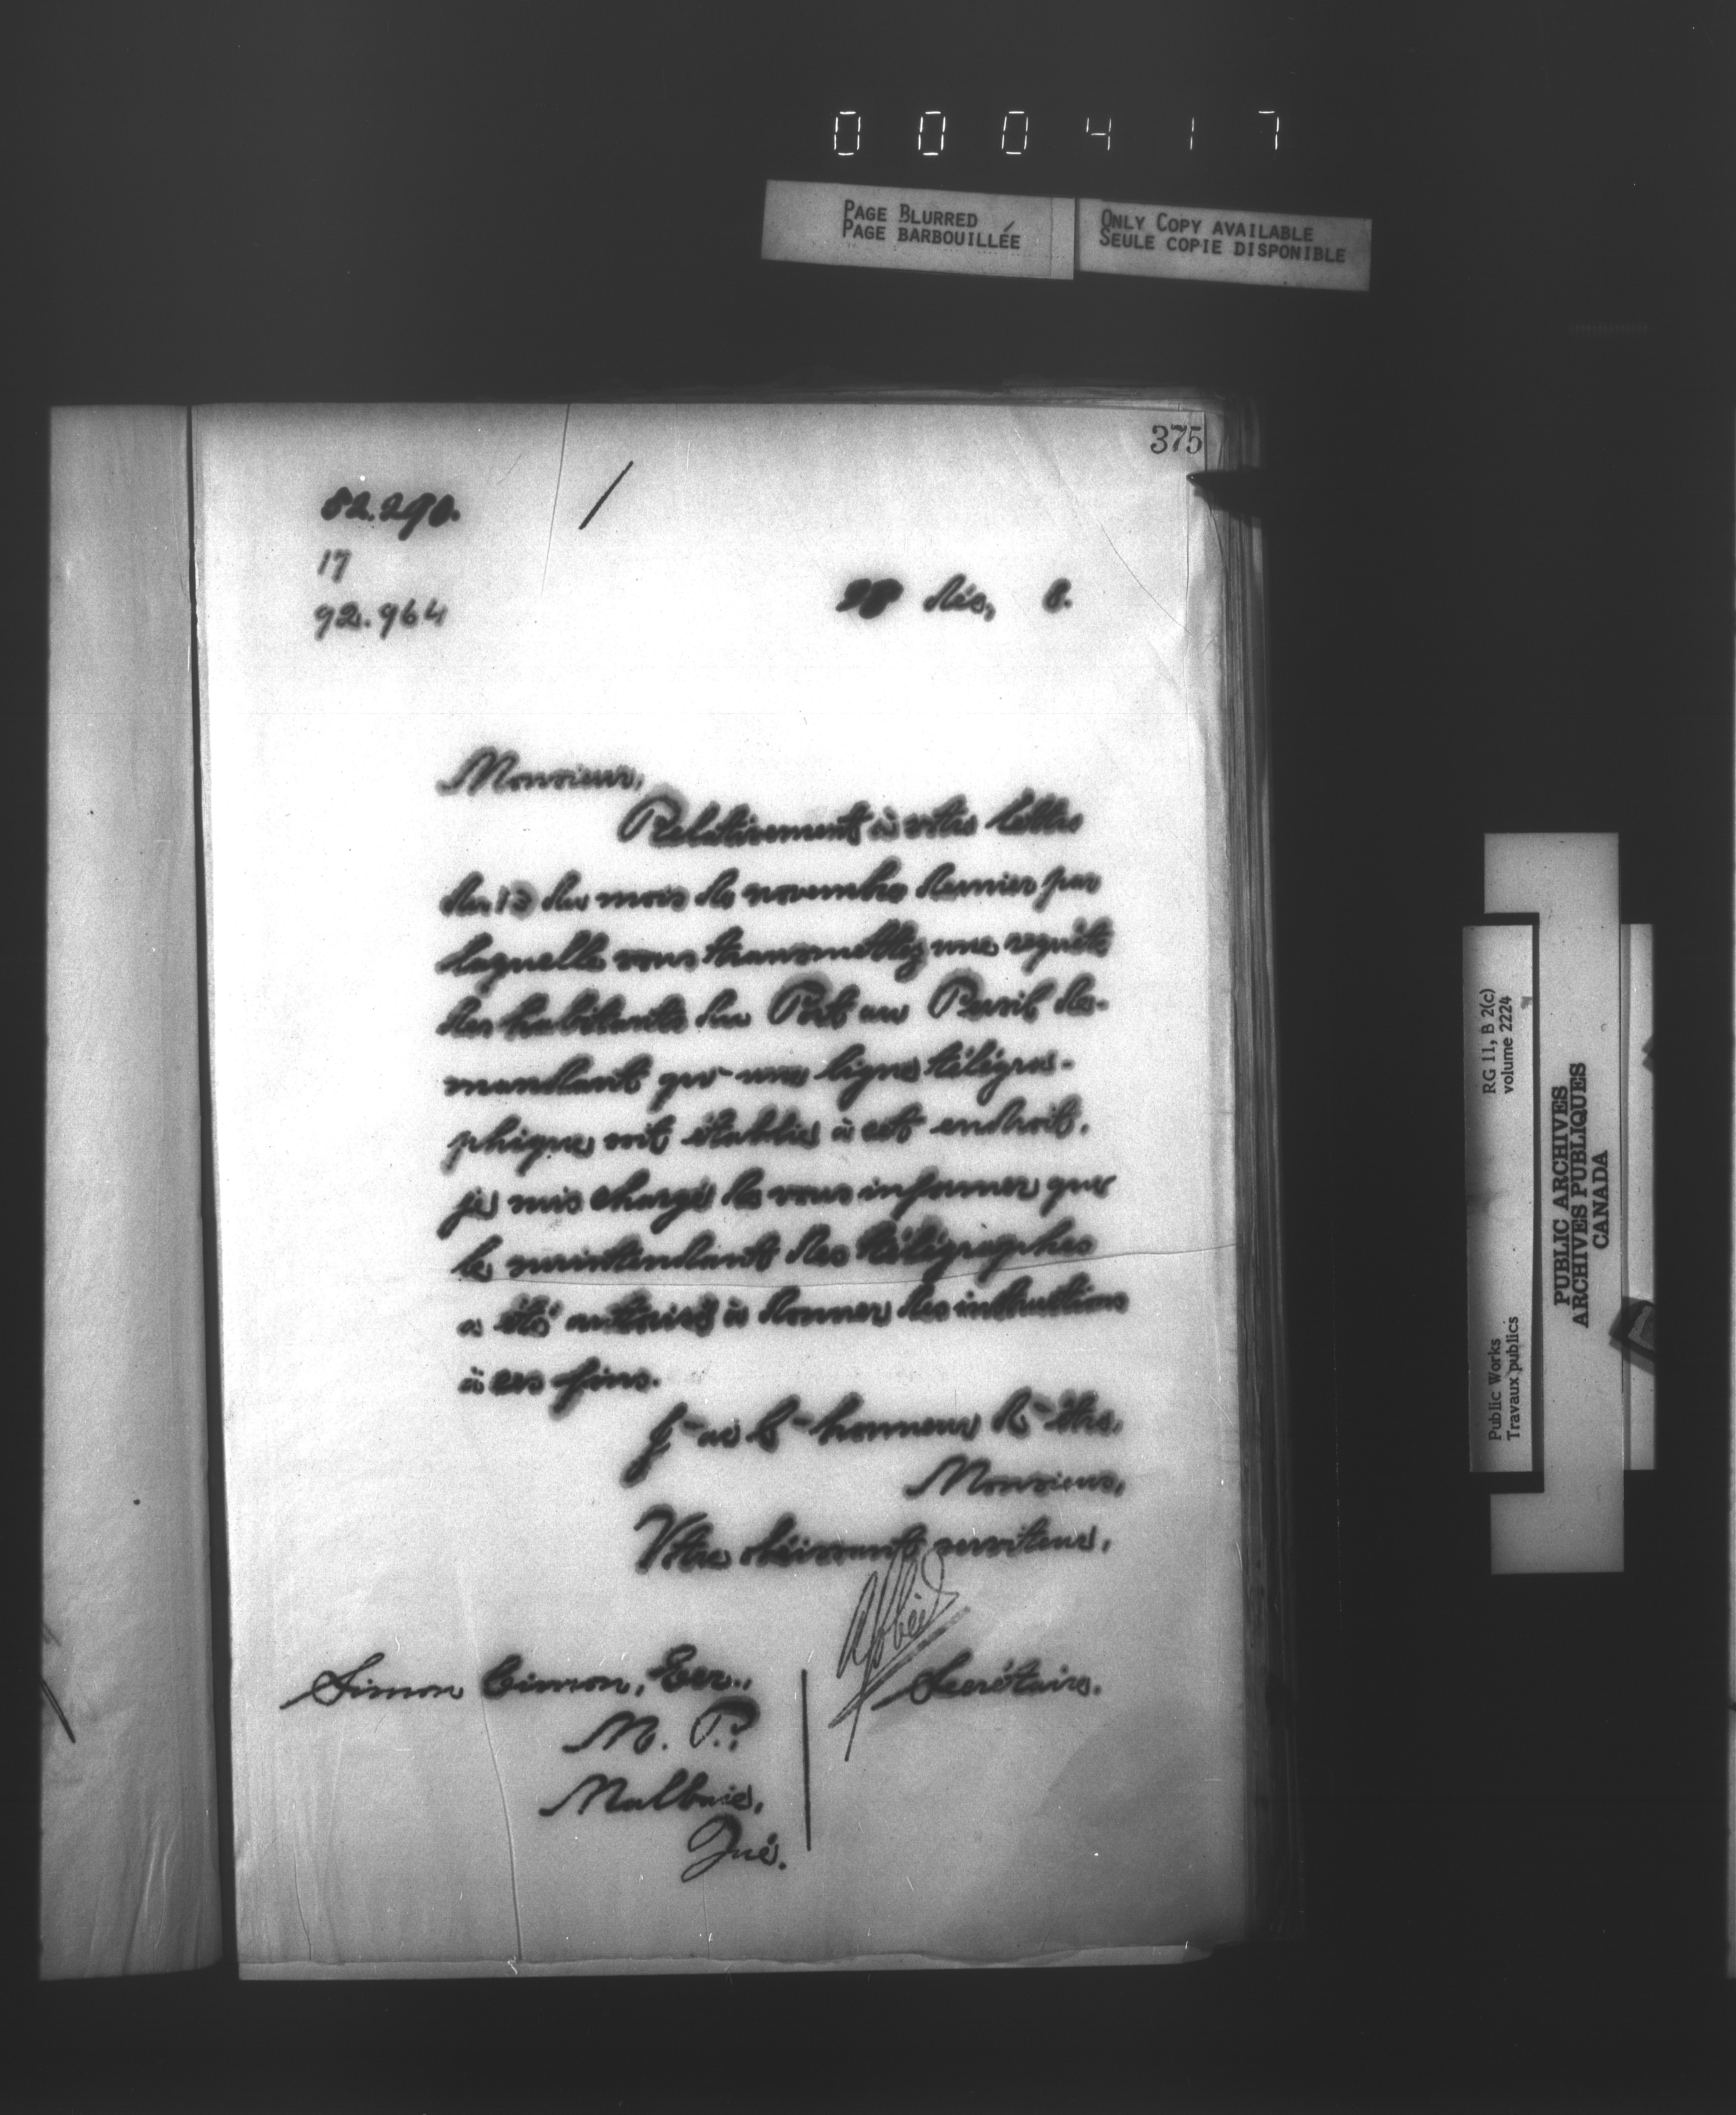 000417
PAGE BLURRED
PAGE BARBOUILLÉE
ONLY COPY AVAILABLE
SEULE COPIE DISPONIBLE
375
82.290.
17
92.964
28 Déc, 8.
Monsieur,
Relativement à votre lettre
du du mois de novembre dernier par
laquelle vous transmettez une requête
des habitants du Port au Persil de-
mandant qu'une ligne télégra-
phique soit établie à cet endroit,
je suis chargé de vous informer que
le surintendant des télégraphes
a été autorisé à donner des instructions
à ces fins.
J'ai l'honneur d'être,
Monsieur,
Votre obéissant serviteur,
Secrétaire.
Simon Cimon, Ecr.,
M. P.,
Malbaie,
Qué.
RG 11, B 2(c)
volume 2224
Public Works
Travaux publics
PUBLIC ARCHIVES
ARCHIVES PUBLIQUES
CANADA